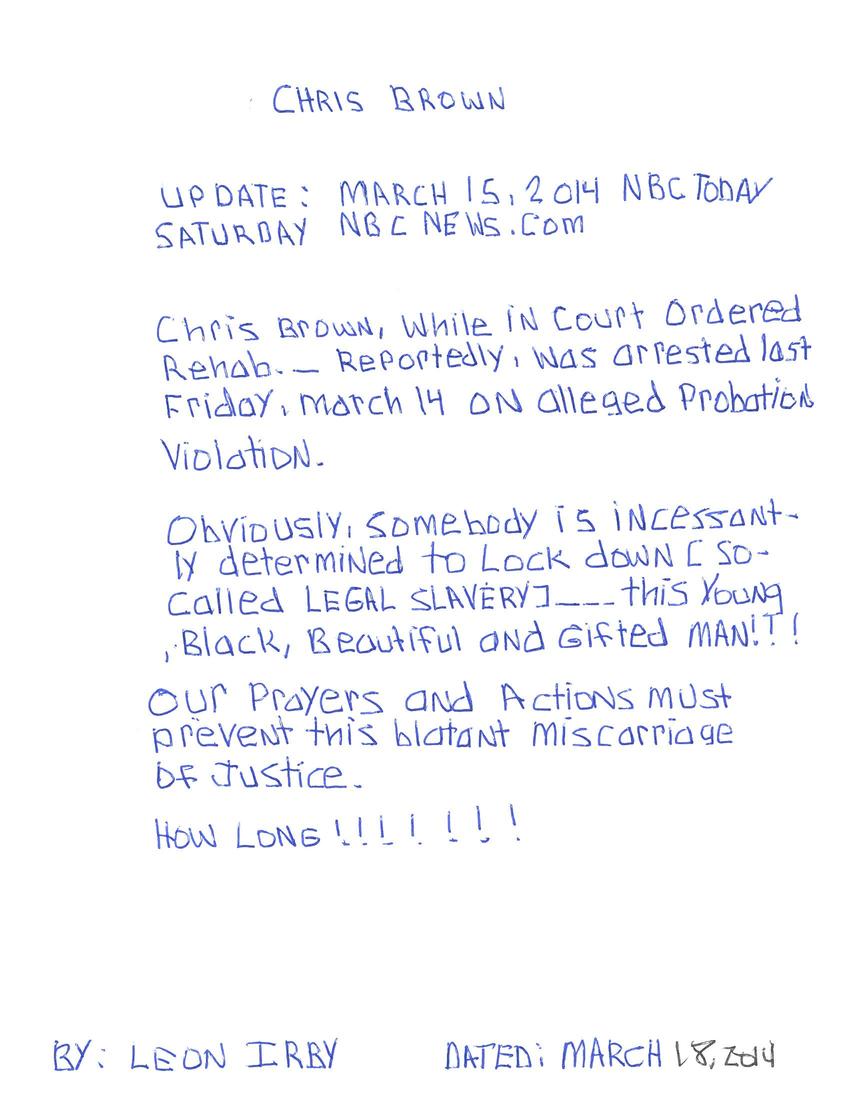 CHRIS BROWN
UPDATE: MARCH 15, 2014 NBC TODAY
SATURDAY NBC NEWS.COM
Chris BROWN, While iN Court Ordered
Rehab. — Reportedly, was arrested last
Friday, march 14 ON alleged Probation
Violation.
Obviously, Somebody is iNcessant-
ly determined to Lock down [ so-
called LEGAL SLAVERY] ___ this Young
, Black, Beautiful and Gifted MAN!!!
Our Prayers and Actions must
prevent this blatant miscarriage
of Justice.
HOW LONG !!!!!!!
BY: LEON IRBY DATED: MARCH 18, 2014